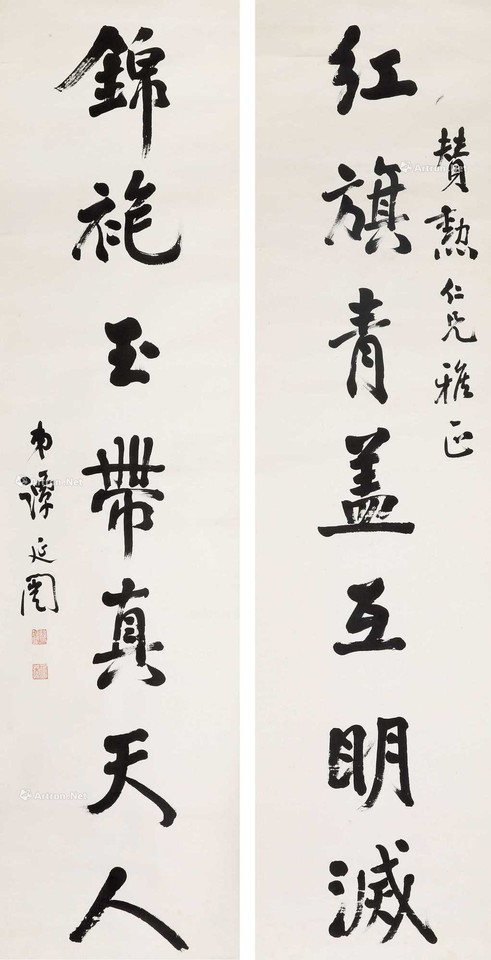 贊勳仁兄雅正
紅旗青盖互明滅
錦袍玉帶真天人
弟譚延闓
Artron.Net
Artron.Net
Artron.Net
Artron.Net